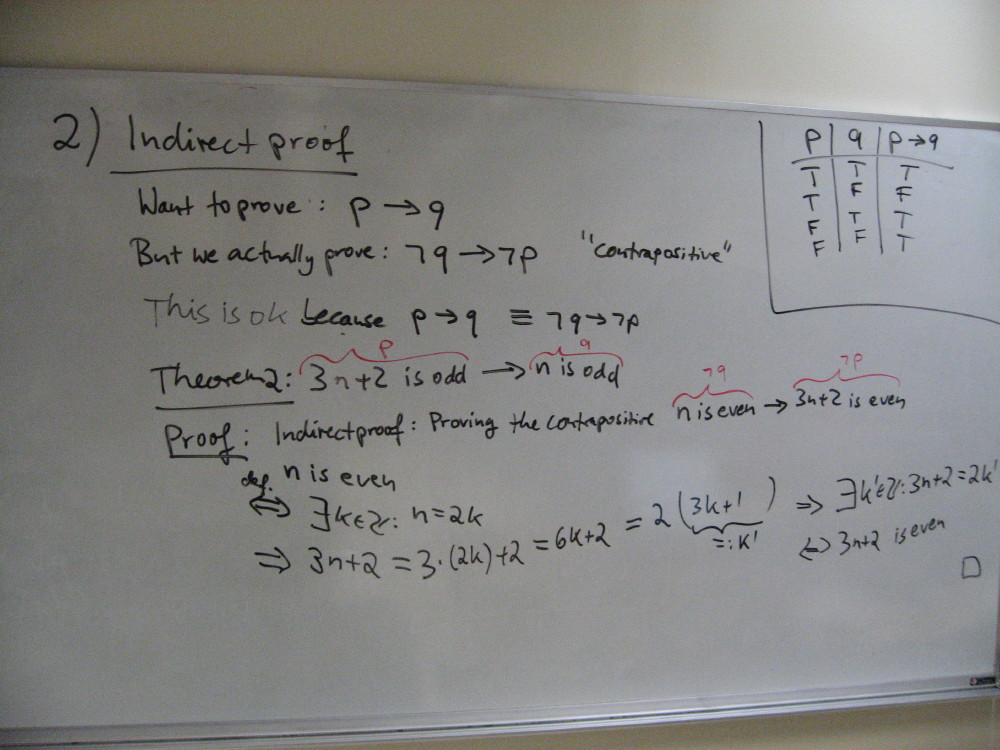 2) Indirect proof
p | q | p → q
T | T | T
T | F | F
F | T | T
F | F | T
Want to prove: p → q
But we actually prove: ¬q → ¬p "contrapositive"
This is ok because p → q ≡ ¬q → ¬p
p q
Theorem 2: 3n+2 is odd → n is odd
¬q ¬p
Proof: Indirect proof: Proving the contrapositive n is even → 3n+2 is even
n is even
def. ⇔ ∃k∈ℤ: n=2k
⇒ 3n+2 = 3·(2k)+2 = 6k+2 = 2(3k+1) ⇒ ∃k'∈ℤ: 3n+2=2k'
=: k'
⇔ 3n+2 is even
□